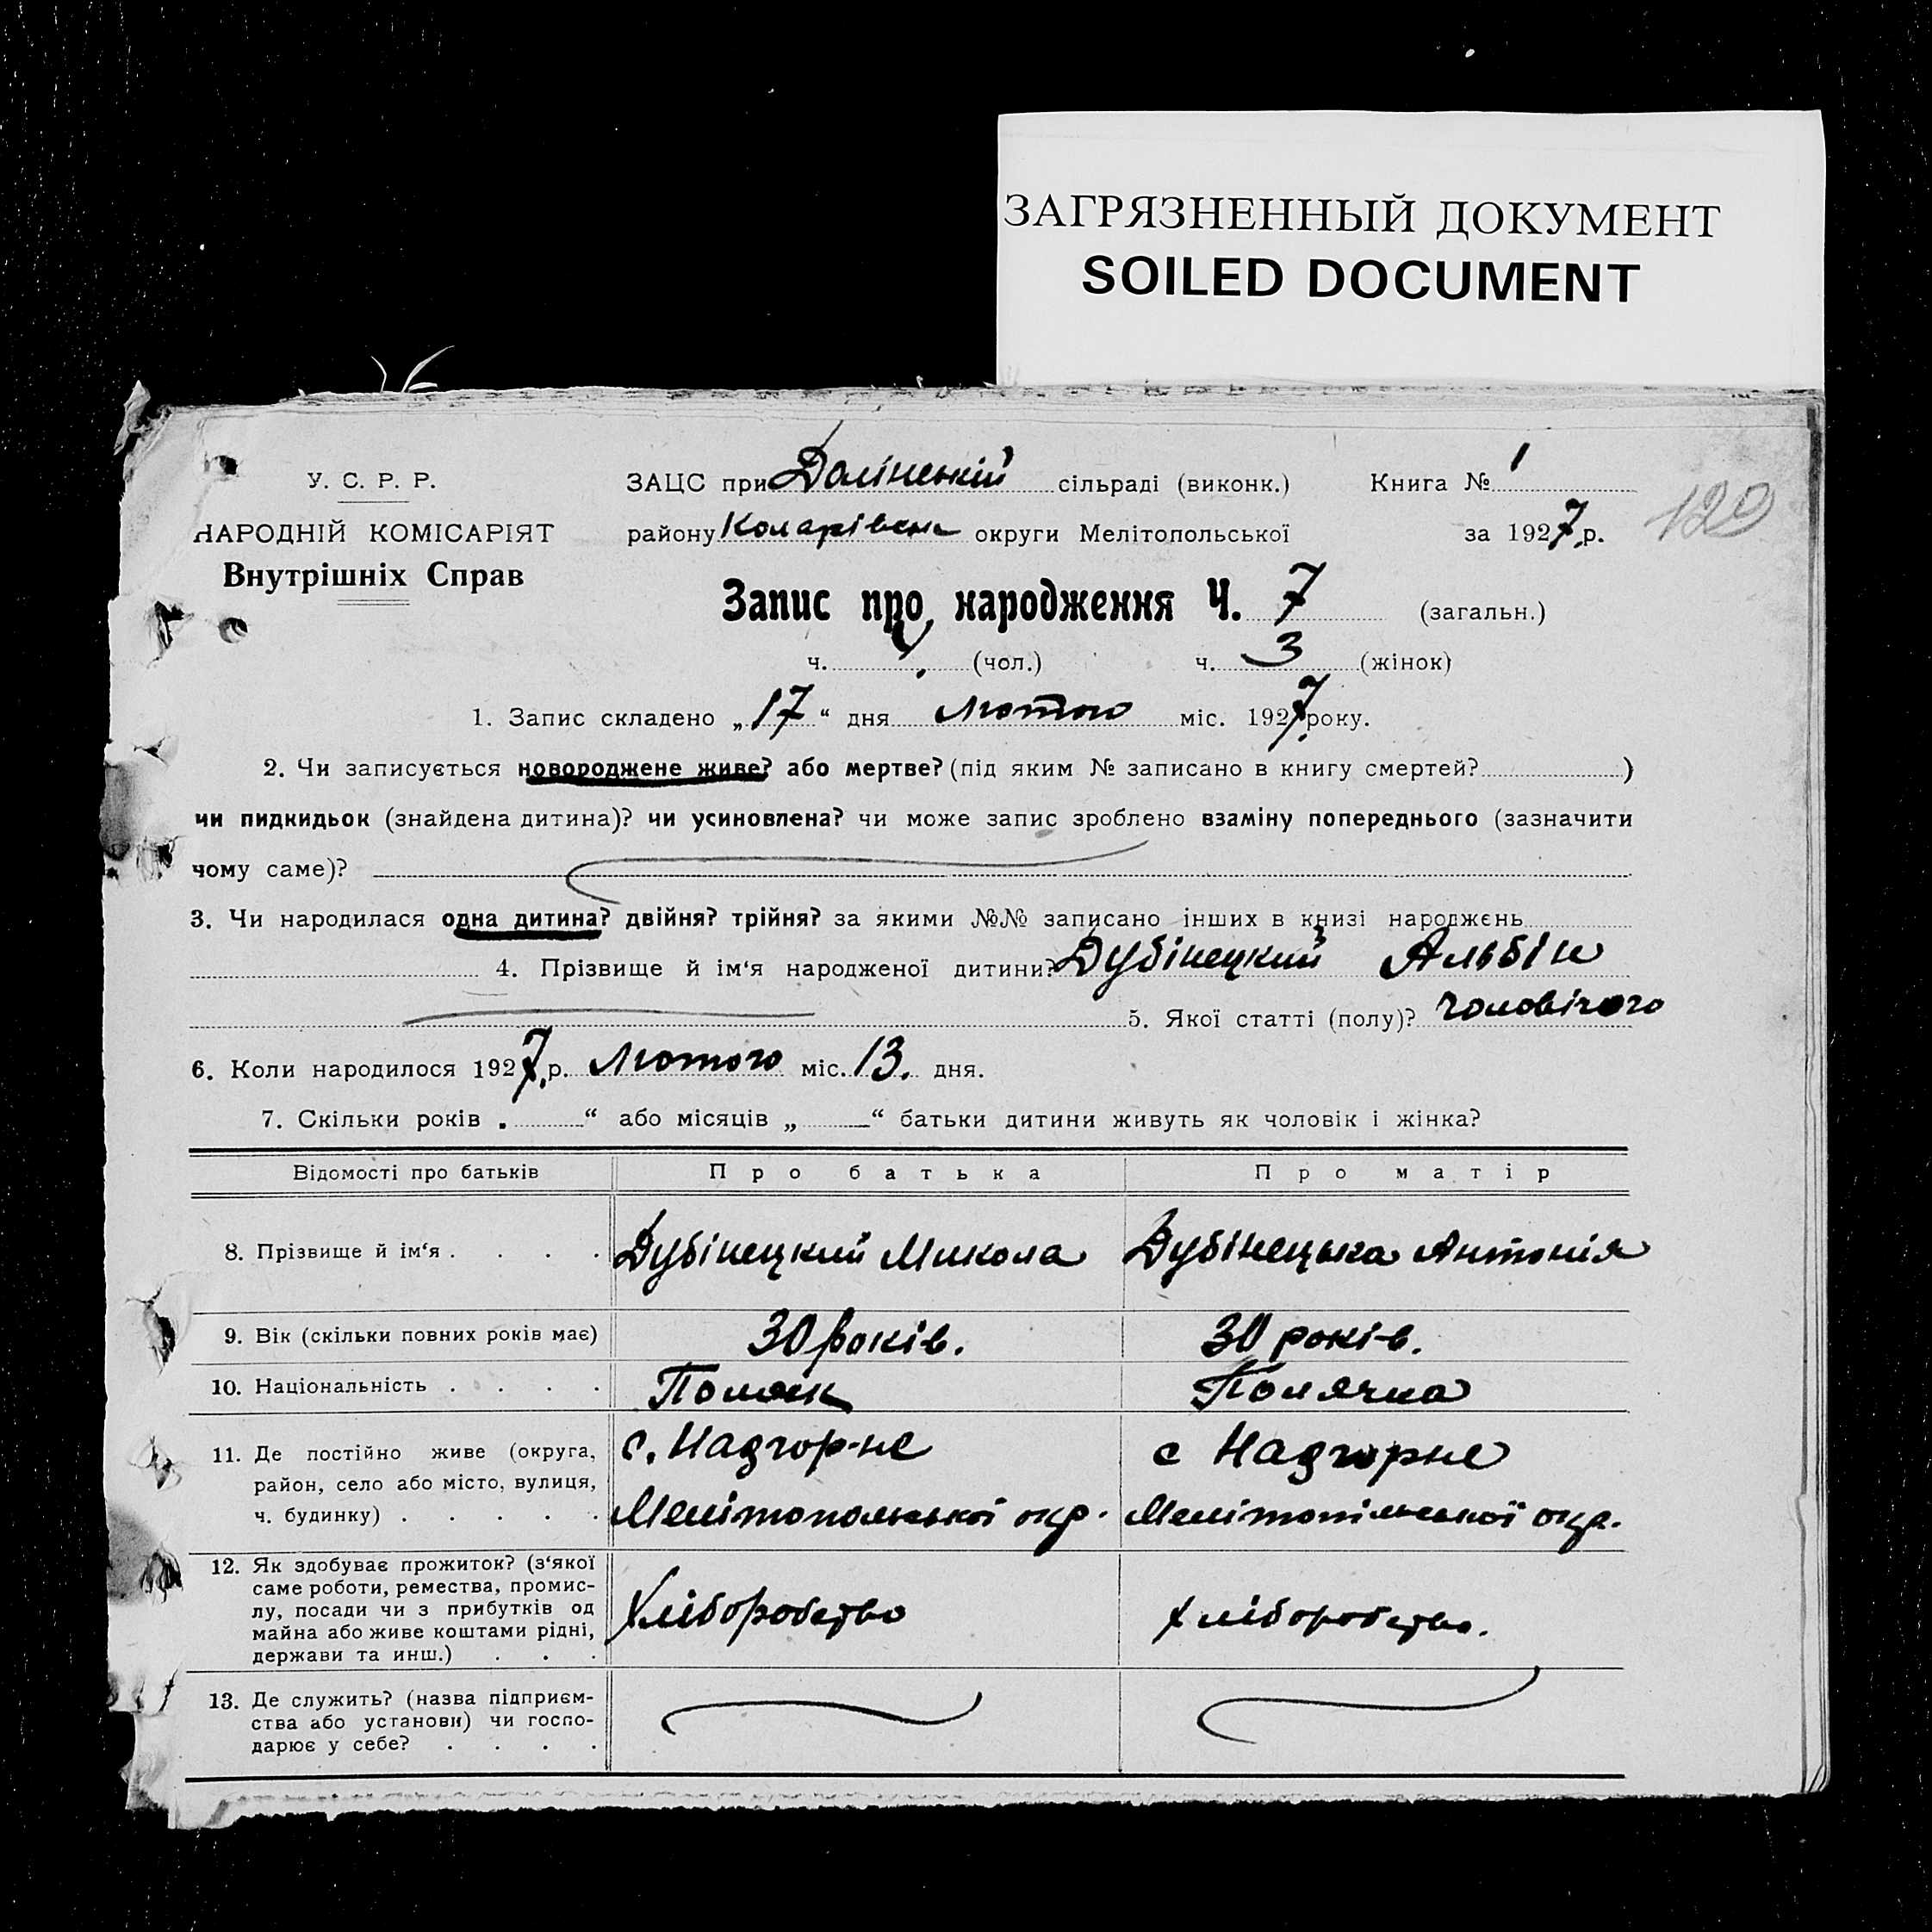 ЗАГРЯЗНЕННЫЙ ДОКУМЕНТ
SOILED DOCUMENT
У. С. Р. Р.
НАРОДНІЙ КОМІСАРІЯТ
Внутрішніх Справ
ЗАЦС при Долінській сільраді (виконк.) Книга № 1
району Коларівськ округи Мелітопольської за 1927 р.
120
Запис про народження Ч. 7 (загальн.)
ч. (чол.) ч. 3 (жінок)
1. Запис складено „17“ дня лютого міс. 1927 року.
2. Чи записується новороджене живе? або мертве? (під яким № записано в книгу смертей? )
чи пидкидьок (знайдена дитина)? чи усиновлена? чи може запис зроблено взаміну попереднього (зазначити
чому саме)?
3. Чи народилася одна дитина? двійня? трійня? за якими №№ записано інших в книзі народжень
4. Прізвище й ім‘я народженої дитини? Дубінецкий Альбін
5. Якої статті (полу)? чоловічого
6. Коли народилося 1927 р. Лютого міс. 13. дня.
7. Скільки років „ “ або місяців „ “ батьки дитини живуть як чоловік і жінка?
Відомості про батьків Про батька Про матір
8. Прізвище й ім‘я . . . . Дубінецкий Микола Дубінецька Антонія
9. Вік (скільки повних років має) 30 років. 30 років.
10. Національність . . . . Поляк Полячка
11. Де постійно живе (округа, район, село або місто, вулиця, ч. будинку) . . . . . с. Надгор-не Мелітопольської окр. с Надгорне Мелітопільської окр.
12. Як здобуває прожиток? (з‘якої саме роботи, ремества, промис-
лу, посади чи з прибутків од
майна або живе коштами рідні,
держави та инш.) . . . Хліборобство хліборобство.
13. Де служить? (назва підприєм-
ства або установи) чи госпо-
дарює у себе? . . . .